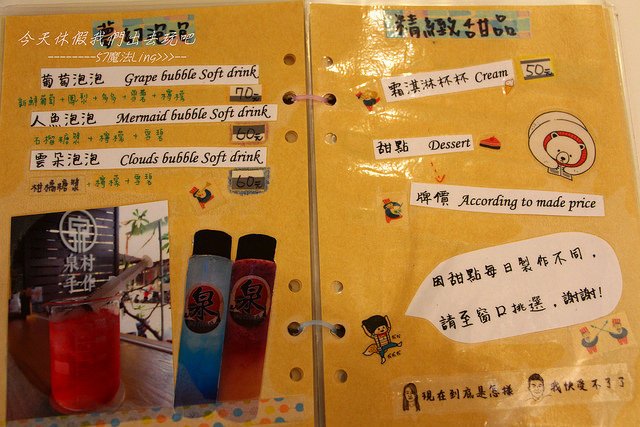 今天休假我們出去玩吧
--------57魔法Ling>>>--
夢幻逸品
葡萄泡泡 Grape bubble Soft drink
70元
人魚泡泡 Mermaid bubble Soft drink
60元
雲朵泡泡 Clouds bubble Soft drink
柑橘糖漿+檸檬+雪碧
60元
泉村
手作
泉
泉
精緻甜品
霜淇淋杯杯 Cream
50元
甜點 Dessert
牌價 According to made price
因甜點每日製作不同,
請至窗口挑選,謝謝!
現在到底是怎樣
我快受不了了